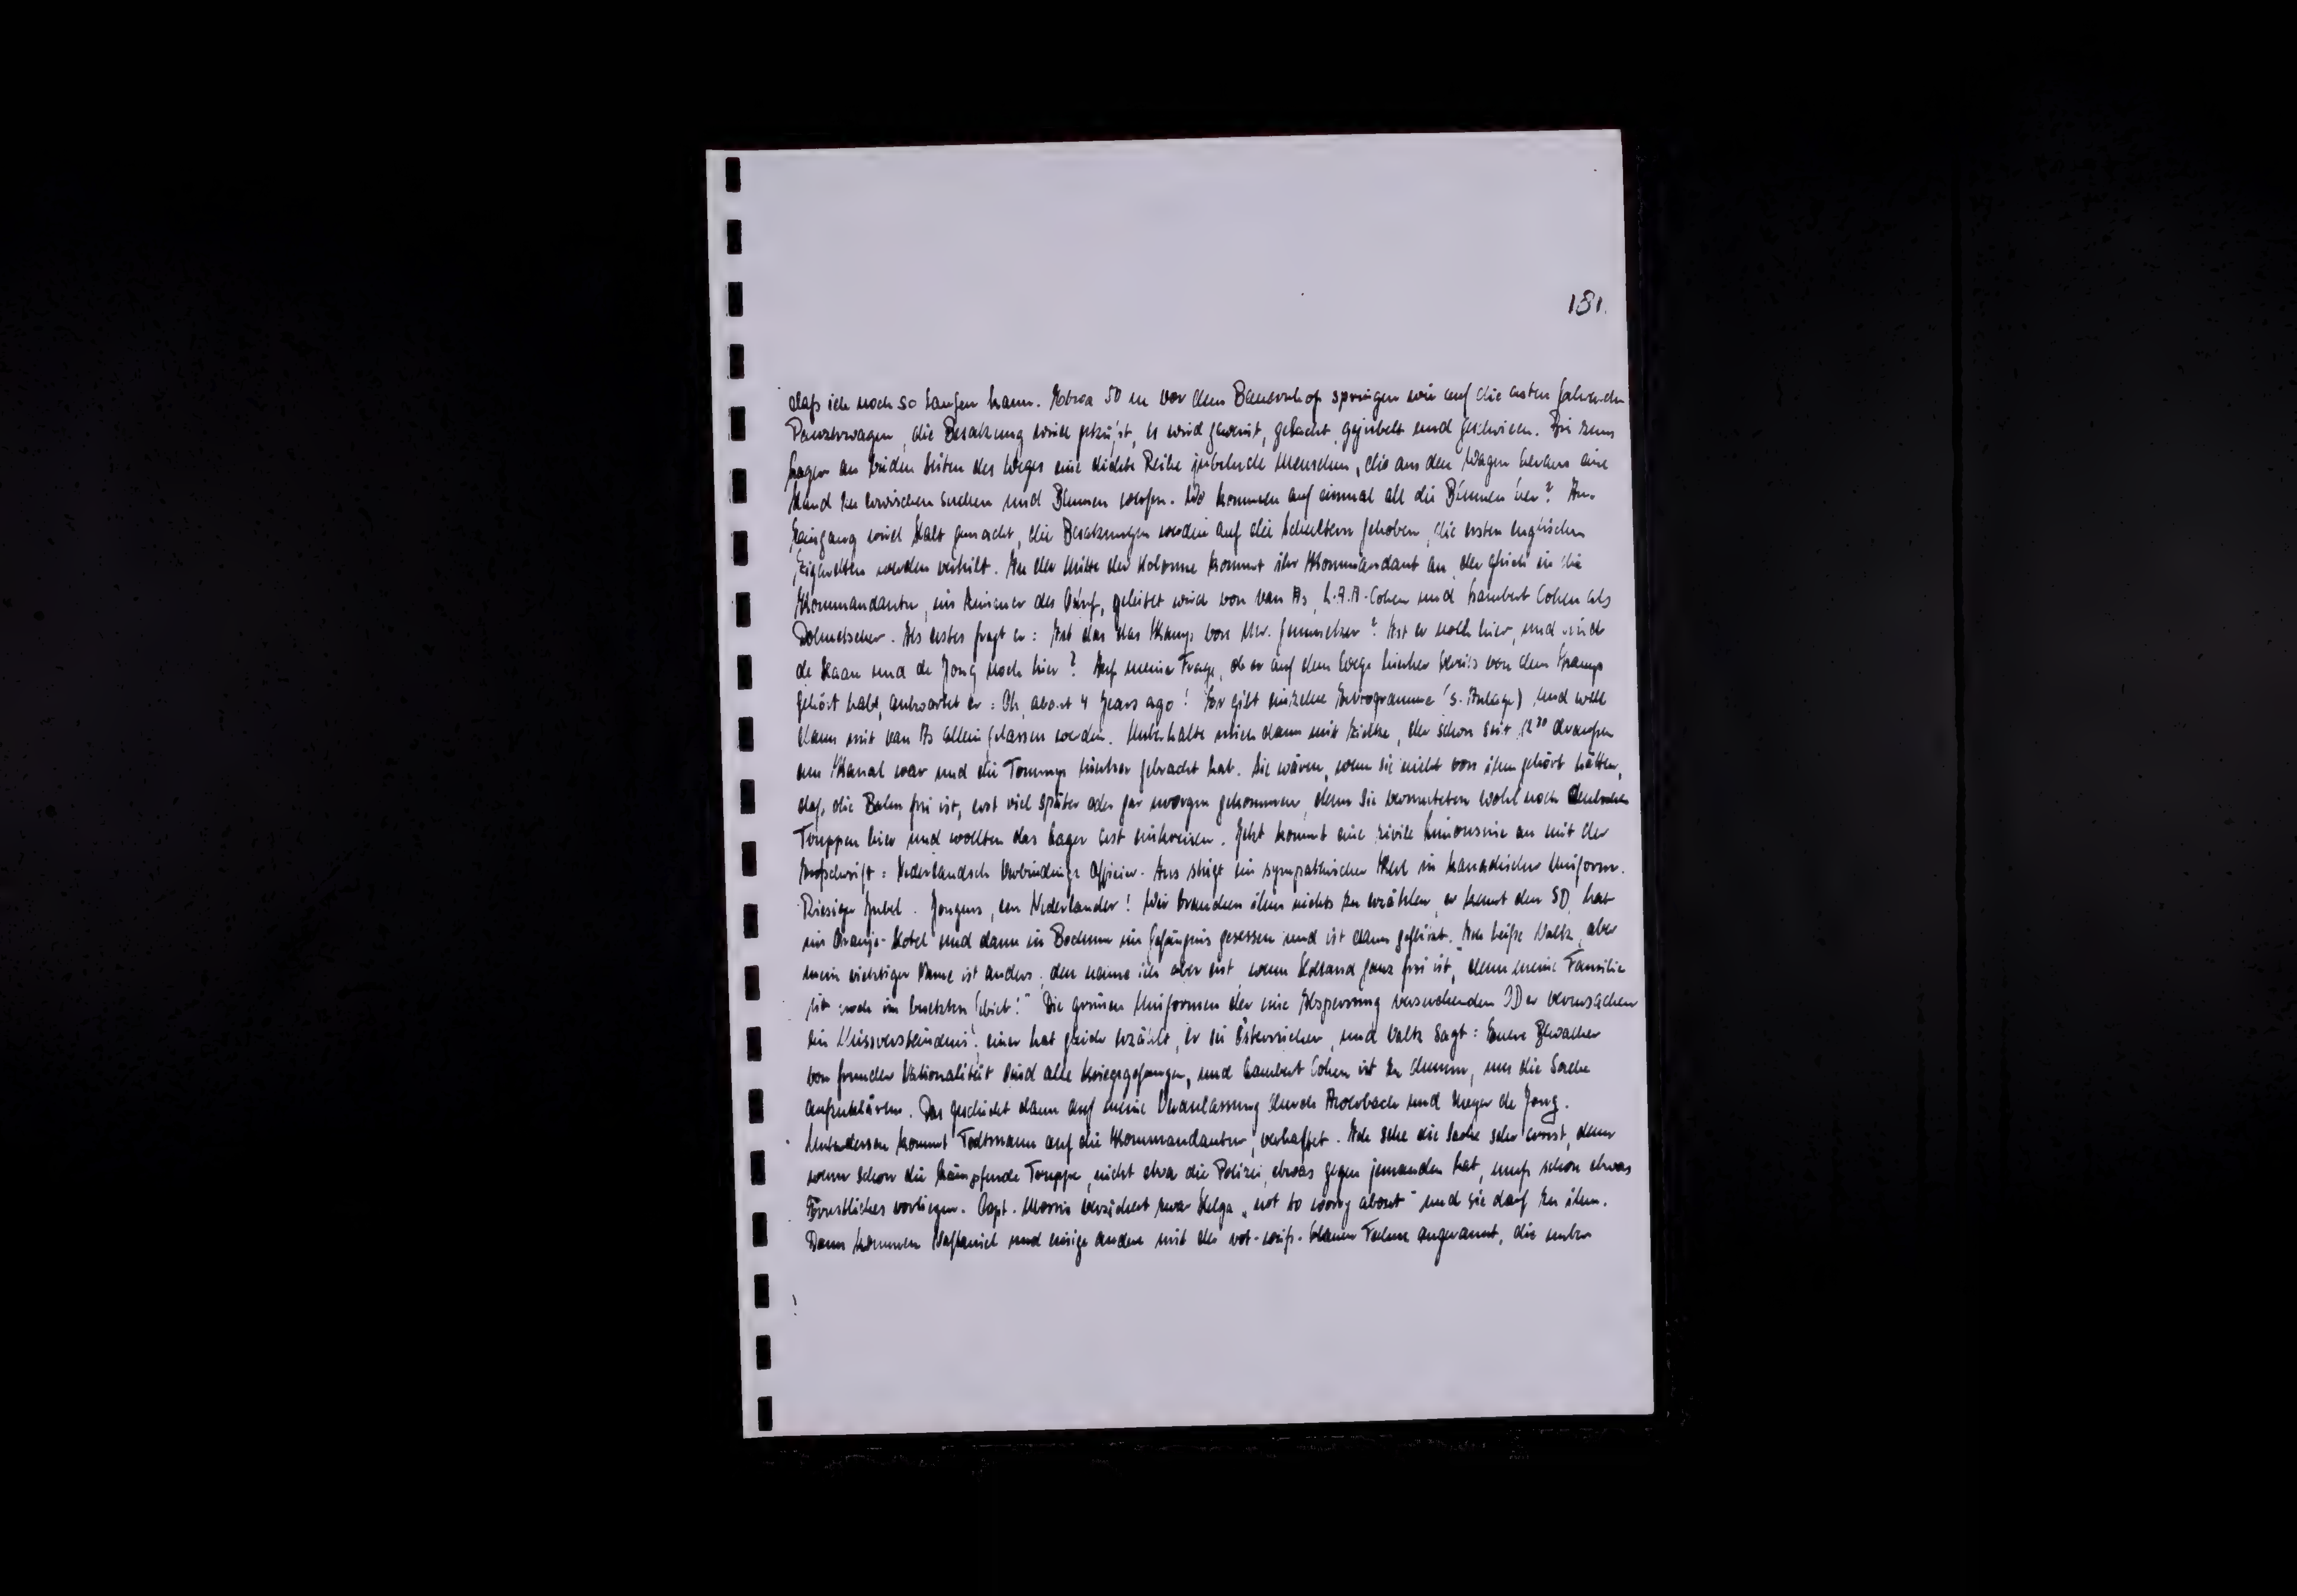 181.
daß ich noch so laufen kann. Etwa 50 m vor dem Bauernhof springen wir auf die ersten fahrenden
Panzerwagen, die Besatzung wird geküßt, es wird geweint, gelacht, gejubelt und geschrieen. Bis zum
Lager an beiden Seiten des Weges eine dichte Reihe jubelnde Menschen, die aus den Wagen heraus eine
Hand zu erwischen suchen und Blumen werfen. Wo kommen auf einmal all die Blumen her? Am
Eingang wird Halt gemacht, die Besatzungen werden auf die Schultern gehoben, die ersten englischen
Zigaretten werden verteilt. In der Mitte der Kolonne kommt ihr Kommandant an, der gleich in die
Kommandantur, ins Zimmer des Obstf, geleitet wird von van As, L.A.A. Cohen und Lambert Cohen als
Dolmetscher. Als erstes fragt er: Ist das das Kamp von Mr. Gemmeker? Ist er noch hier, und sind
de Haan und de Jong noch hier? Auf meine Frage, ob er auf dem Wege hierher bereits von dem Kamp
gehört habe, antwortet er: Oh, about 4 years ago! Er gibt einzelne Autogramme (s. Anlage) und will
dann mit van As allein gelassen werden. Unterhalte mich dann mit Zielke, der schon seit 12³⁰ draußen
am Kanal war und die Tommys hierher gebracht hat. Sie wären, wenn sie nicht von ihm gehört hätten,
daß die Bahn frei ist, erst viel später oder gar morgen gekommen, denn sie vermuteten wohl noch deutsche
Truppen hier und wollten das Lager erst einkreisen. Jetzt kommt eine zivile Limousine an mit der
Aufschrift: Nederlandsch Verbindings Officier. Aus steigt ein sympathischer Kerl in kanadischer Uniform.
Riesiger Jubel. Jongens, een Nederlander! Wir brauchen ihm nichts zu erzählen, er kennt den SD, hat
im Oranje-Hotel und dann in Bochum im Gefängnis gesessen und ist dann geflüchtet. "Ich heiße Valk, aber
mein richtiger Name ist anders; den nenne ich aber erst, wenn Holland ganz frei ist, denn meine Familie
ist noch im besetzten Gebiet!" Die grünen Uniformen der eine Absperrung versuchenden OD er verursachen
ein Missverständnis: einer hat gleich erzählt, er sei Österreicher, und Valk sagt: Eure Bewacher
von fremder Nationalität sind alle Kriegsgefangen, und Lambert Cohen ist zu dumm, um die Sache
aufzuklären. Das geschieht dann auf meine Veranlassung durch Auerbach und Meyer de Jong.
Unterdessen kommt Todtmann auf die Kommandantur, verhaftet. Ich sehe die Sache sehr ernst, denn
wenn schon die kämpfende Truppe, nicht etwa die Polizei, etwas gegen jemanden hat, muß schon etwas
Ernstliches vorliegen. Capt. Morris versichert zwar Helga „not to worry about" und sie darf zu ihm.
Dann kommen und einige andere mit der rot-weiß-blauen Fahne angerannt, die unter